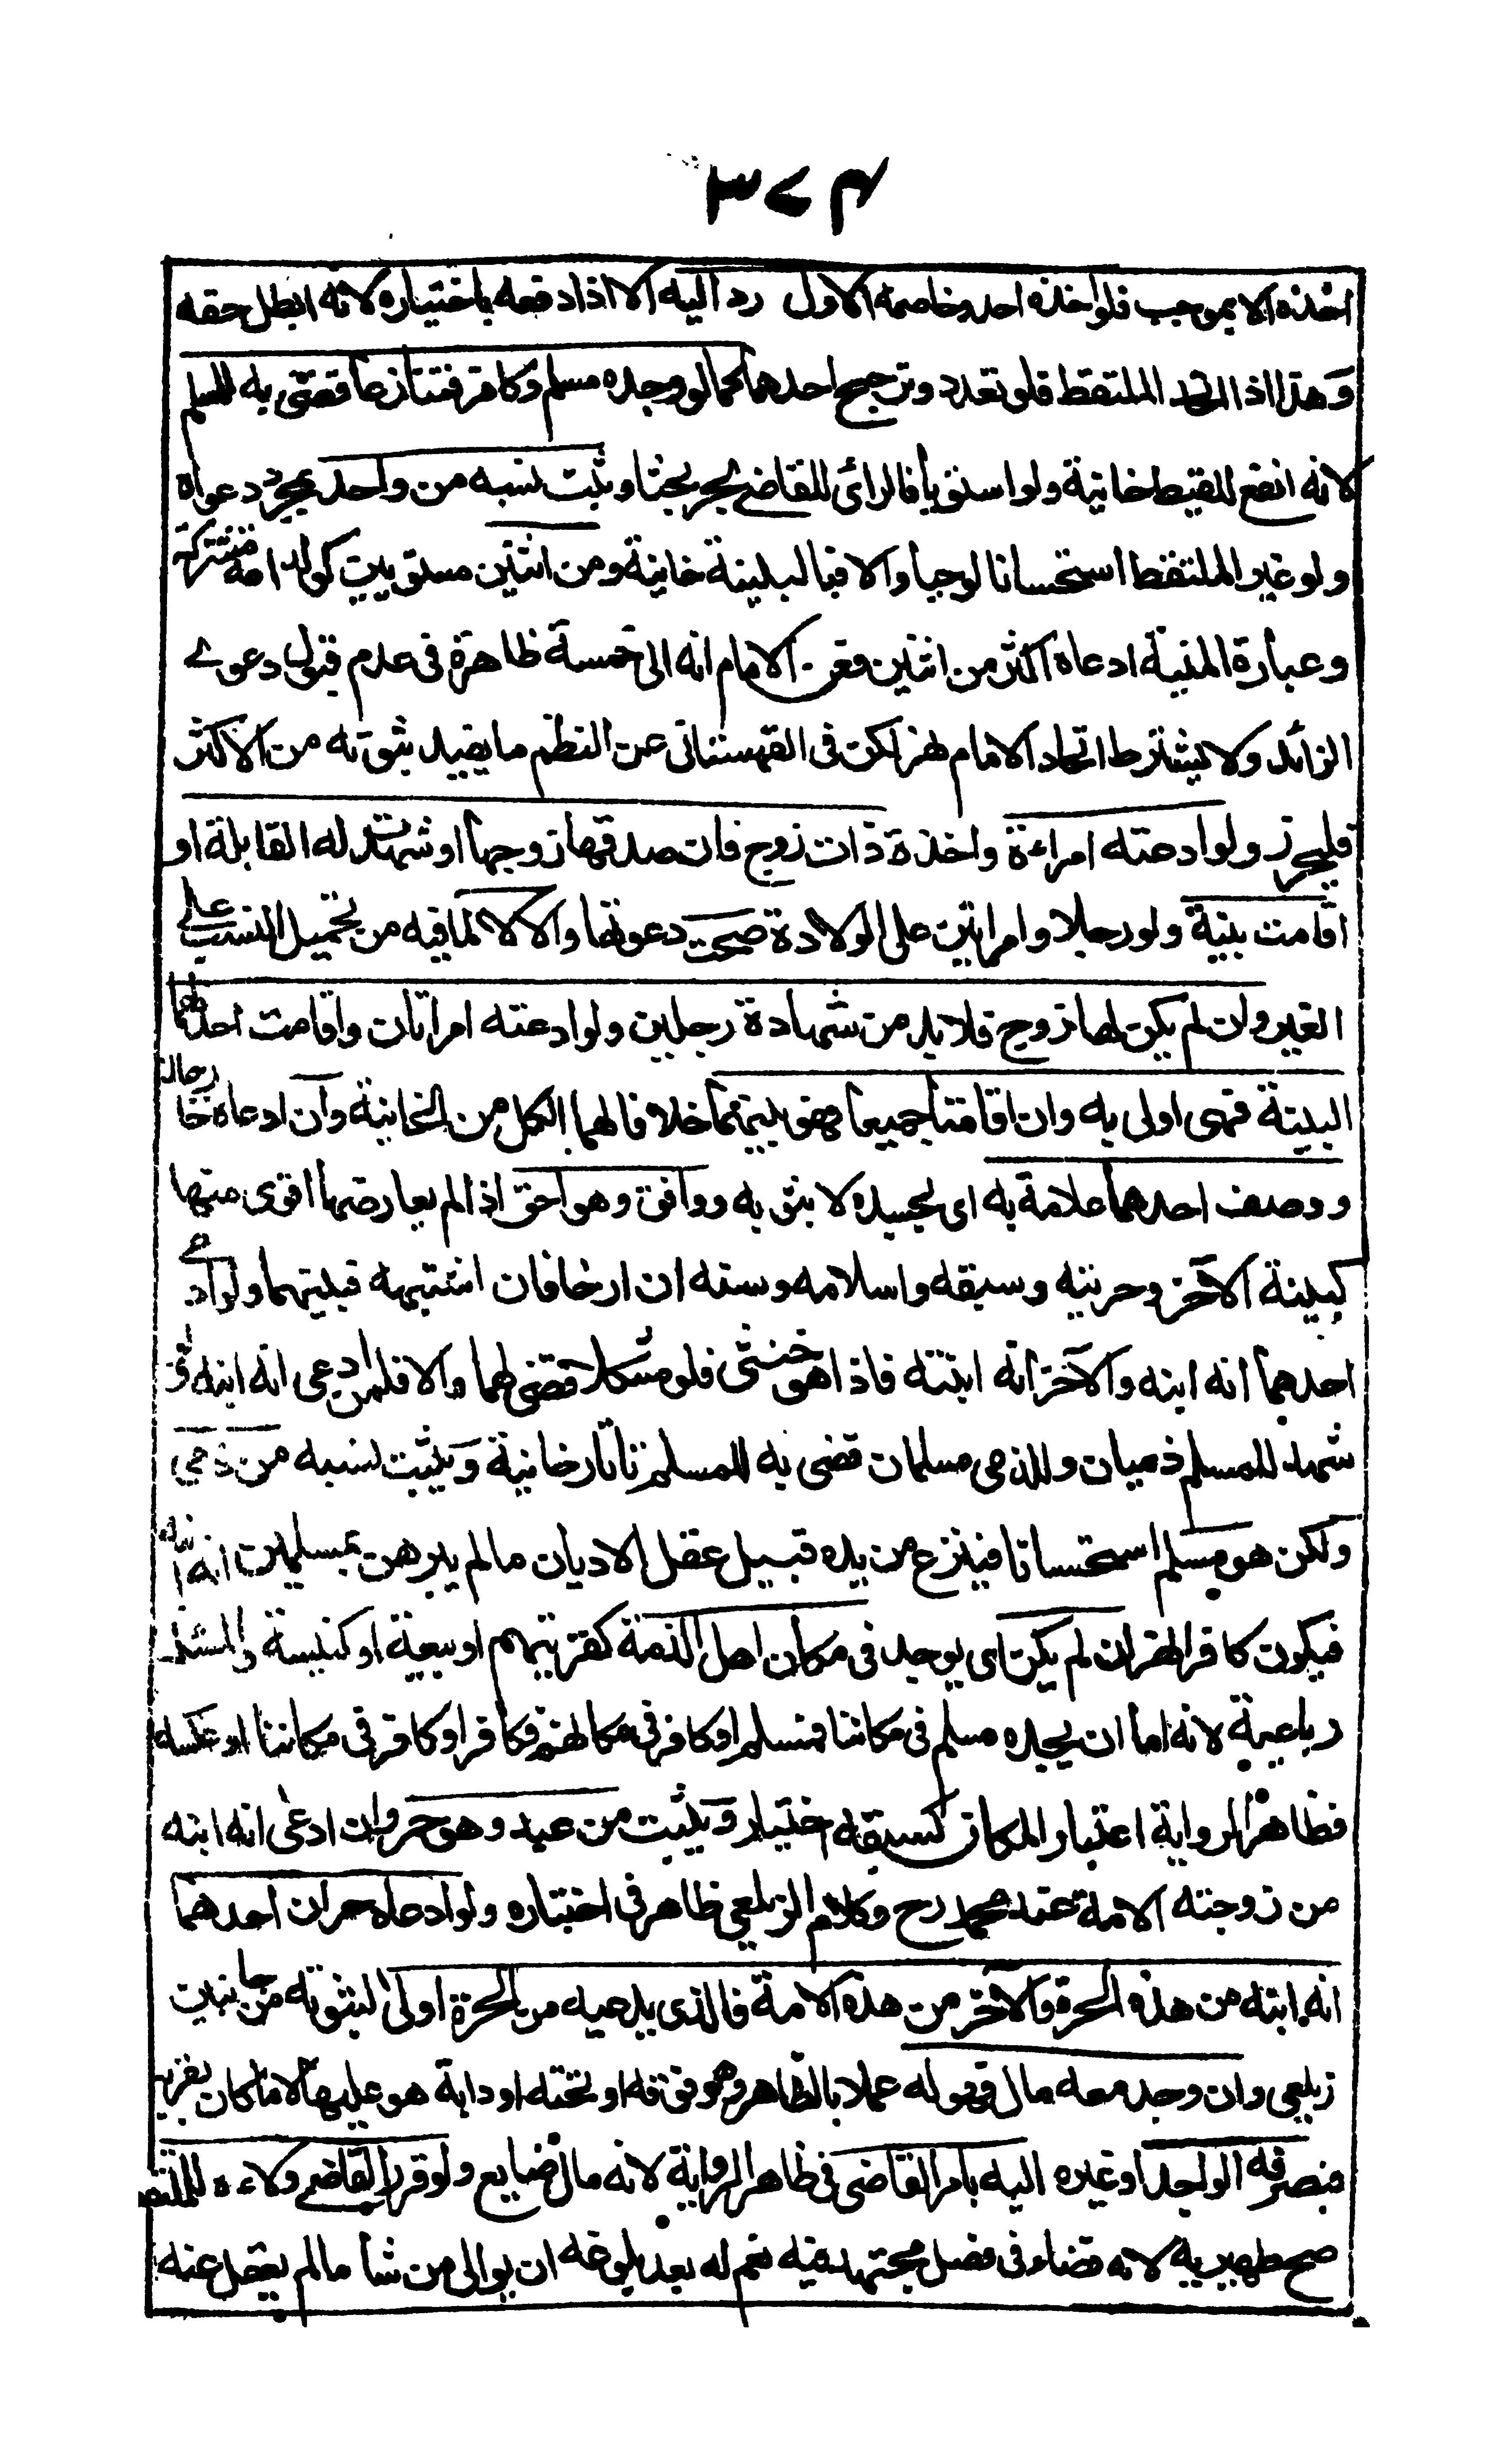 ٣٧٣
اخذه الا بموجب فلو اخذه احد وخاصمه الاول رد اليه الا اذا دفعه باختياره لانه ابطل حقه
وهذا اذا اتحد الملتقط فلو تعدد وترجح احدهما كما لو وجده مسلم وكافر فتنازعا قضى به للمسلم
لانه انفع للقيط خانية ولو استويا فالراى للقاضى بحر بحثا ويثبت نسبه من واحد بمجرد دعواه
ولو غير الملتقط استحسانا لو حيا والا فبالبينة خانية ومن اثنين مستويين كولد امة مشتركة
وعبارة المنية ادعاه اكثر من اثنين فعن الامام انه الى خمسة ظاهرة فى عدم قبول دعوى
الزائد ولا يشترط اتحاد الامام نهر لكن فى القهستانى عن النظم ما يفيد ثبوته من الاكثر
فليحرز ولو ادعته امراءة واخذة ذات زوج فان صدقها زوجها او شهدت له القابلة او
اقامت بينة ولو رجلا وامراتين على الولادة صحت دعوتها والا لا لما فيه من تحميل النسب على
الغير وان لم يكن لها زوج فلا بد من شهادة رجلين ولو ادعته امراتان واقامت احداهما
البينة فهى اولى به وان اقامتا جميعا فهو بينهما خلافا لهما الكل من الخانية وان ادعاه خارجان
ووصف احدهما علامة به اى بجسده لا بثوبه ووافق وهو احق اذا لم يعارضها اقوى منها
كبينة الاخر وحريته وسبقه واسلامه وسنه ان ارخا فان اشتبه فبينهما ولو ادعى
احدهما انه ابنه والآخر انه ابنته فاذا هو خنثى فلو مشكلا قضى لهما والا فلمن ادعى انه ابنه ولو
شهد للمسلم ذميان وللذمى مسلمان قضى به للمسلم تاتارخانية ويثبت نسبه من ذمى
ولكن هو مسلم استحسانا فينزع من يده قبيل عقل الاديان ما لم يبرهن بمسلمين انه ابنه
فيكون كافرا نهر ان لم يكن اى يوجد فى مكان اهل الذمة كقريتهم او بيعة او كنيسة والمسئلة
رباعية لانه اما ان يجده مسلم فى مكاننا فمسلم او كافر فى مكانهم فكافر او كافر فى مكاننا او عكسه
فظاهر الرواية اعتبار المكان لسبقه اختيار ويثبت من عبد وهو حر وان ادعى انه ابنه
من زوجته الامة عند محمد رح وكلام الزيلعى ظاهر فى اختياره ولو ادعاه حران احدهما
انه ابنه من هذه الحرة والآخر من هذه الامة فالذى يدعيه من الحرة اولى لثبوته من جانبين
زيلعى وان وجد معه مال فهو له عملا بالظاهر وهو فوقه او تحته او دابة هو عليها لا ما كان بقربه
فيصرفه الواجد او غيره اليه بامر القاضى فى ظاهر الرواية لانه مال ضايع ولو قرر القاضى ولاءه للملتقط
صح ظهيرية لانه قضاء فى فصل مجتهد فيه نعم له بعد بلوغه ان يوالى من شأ ما لم يعقل عنه